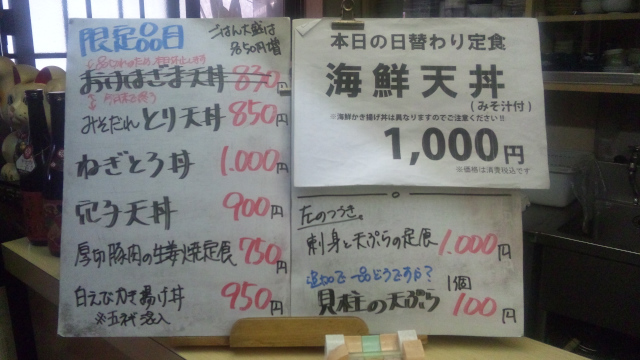 限定品目
ごはん大盛は
各50円増
おけはざま天丼 830
みそだれとり天丼 850円
ねぎとろ丼 1.000円
穴子天丼 900円
厚切豚肉の生姜焼定食 750円
白えびかき揚げ丼 950円
本日の日替わり定食
海鮮天丼
(みそ汁付)
※海鮮かき揚げ丼は異なりますのでご注意ください!!
1,000円
※価格は消費税込です
左のつづき。
刺身と天ぷらの定食 1.000円
追加で一品どうですか?
貝柱の天ぷら 1個 100円